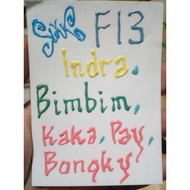 Slank F13
Indra.
Bimbim,
Kaka, Pay,
Bongky